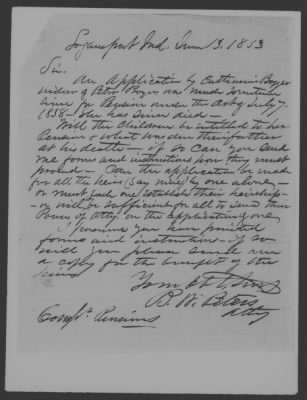 Logansport Ind. June 13. 1853
Sir.
An Application by Catharine Boyer
widow of Peter Boyer was made sometime
since for Pension under the Act of July 7.
1838 She has since died—
Will the Children be entitled to her
Pension
at his death— if so can you send
me forms and instructions how they must
proceed— Can the application be made
for all the heirs (say nine) by one alone,—
or must each one establish their heirship—
or will be sufficient for all to send their
Power of Atty. on the application of one
I presume you have printed
forms and instructions— if so
will you please send me
a copy for the benefit of the
heirs
Your Obt. Servt.
B. W. Peters
Atty
Comr. Pensions